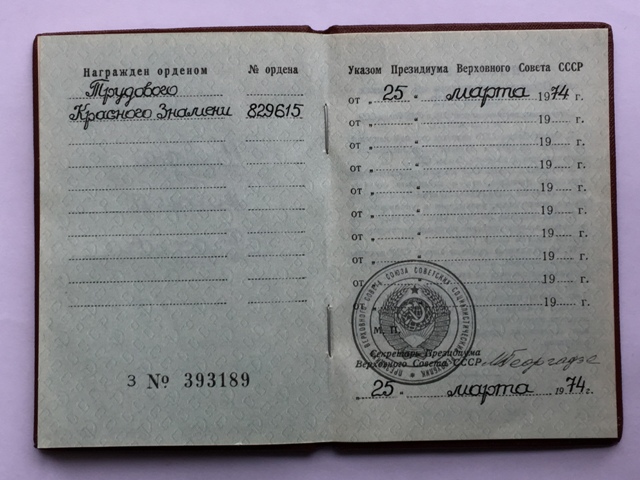 Награжден орденом № ордена
Трудового
Красного Знамени 829615
З № 393189
Указом Президиума Верховного Совета СССР
от „ 25 “ марта 1974 г.
от „ “ 19 г.
от „ “ 19 г.
от „ “ 19 г.
от „ “ 19 г.
от „ “ 19 г.
от „ “ 19 г.
от „ “ 19 г.
от „ “ 19 г.
19 г.
М. П.
Секретарь Президиума
Верховного Совета СССР МГеоргадзе
„ 25 “ марта 1974 г.
ВЕРХОВНОГО СОВЕТА СОЮЗА СОВЕТСКИХ СОЦИАЛИСТИЧЕСКИХ